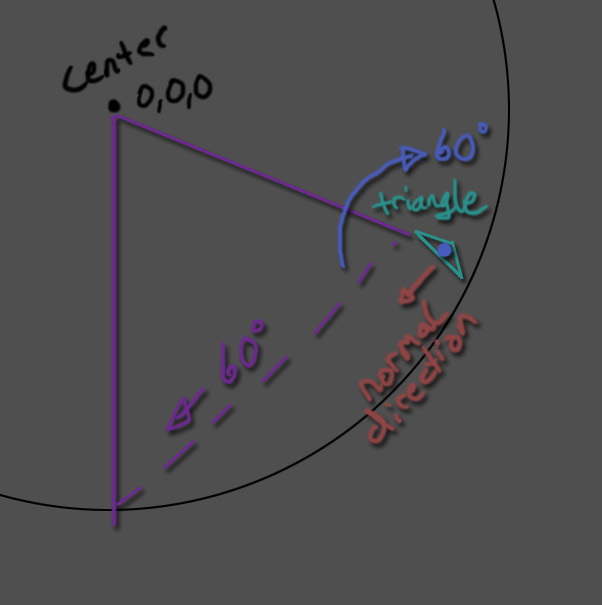 center
0,0,0
60°
triangle
60°
normal
direction